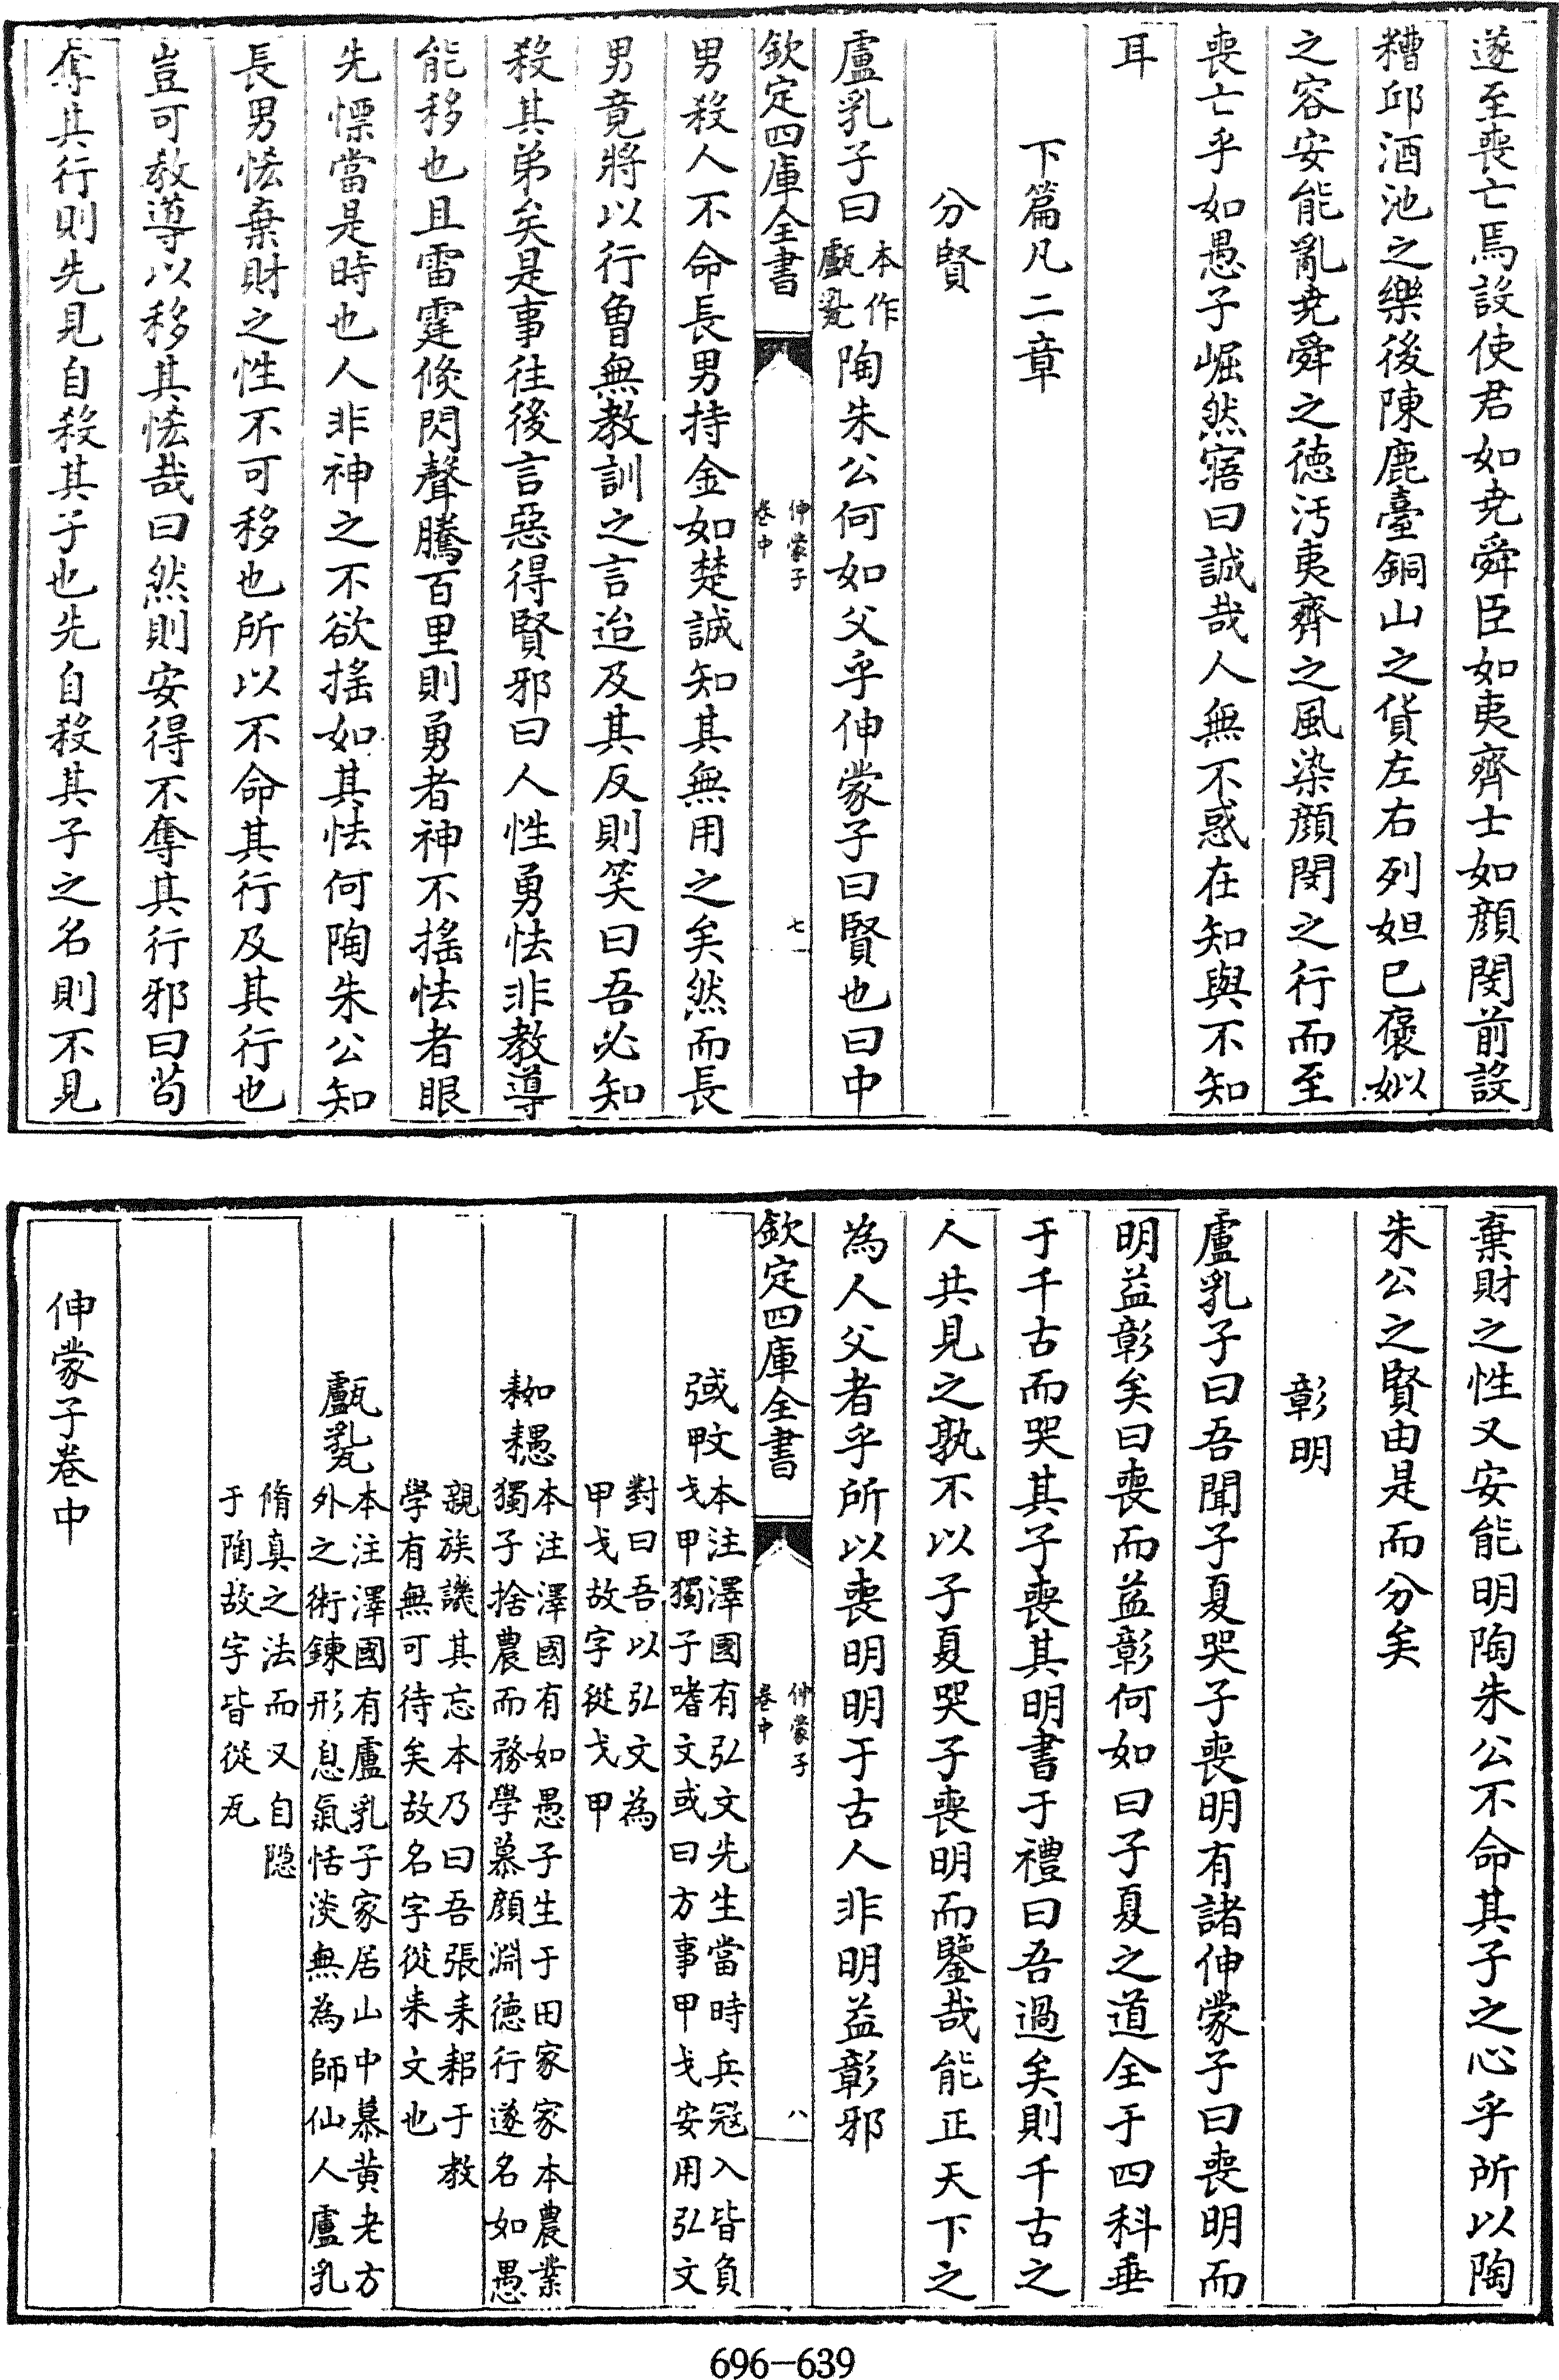 遂至喪亡焉設使君如尭舜臣如夷齊士如顔閔前設
糟邱酒池之樂後陳鹿臺銅山之貨左右列妲已褒姒
之容安能亂尭舜之徳汚夷齊之風染顔閔之行而至
喪亡乎如愚子崛然寤曰誠哉人無不惑在知與不知
耳
下篇凡二章
分賢
盧乳子曰本作陶朱公何如父乎伸蒙子曰賢也曰中
欽定四庫全書 伸蒙子 卷中 七
男殺人不命長男持金如楚誠知其無用之矣然而長
男竟將以行曾無教訓之言迨及其反則笑曰吾必知
殺其弟矣是事往後言惡得賢邪曰人性勇怯非教導
能移也且雷霆倐閃聲騰百里則勇者神不搖怯者眼
先慓當是時也人非神之不欲搖如其怯何陶朱公知
長男恡棄財之性不可移也所以不命其行及其行也
豈可教導以移其恡哉曰然則安得不奪其行邪曰茍
奪其行則先見自殺其子也先自殺其子之名則不見
棄財之性又安能明陶朱公不命其子之心乎所以陶
朱公之賢由是而分矣
彰明
盧乳子曰吾聞子夏哭子喪明有諸伸蒙子曰喪明而
明益彰矣曰喪而益彰何如曰子夏之道全于四科垂
于千古而哭其子喪其明書于禮曰吾過矣則千古之
人共見之孰不以子夏哭子喪明而鑒哉能正天下之
為人父者乎所以喪明明于古人非明益彰邪
欽定四庫全書 伸蒙子 卷中 八
本注澤國有弘文先生當時兵冦入皆負
戈甲獨子嗜文或曰方事甲戈安用弘文
對曰吾以弘文為
甲戈故字從戈甲
本注澤國有如愚子生于田家家本農業
獨子捨農而務學慕顔淵德行遂名如愚
親族譏其忘本乃曰吾張耒耜于教
學有無可待矣故名字從耒文也
本注澤國有盧乳子家居山中慕黄老方
外之術鍊形息氣恬淡無為師仙人盧乳
脩真之法而又自隠
于陶故字皆從瓦
伸蒙子卷中
696-639